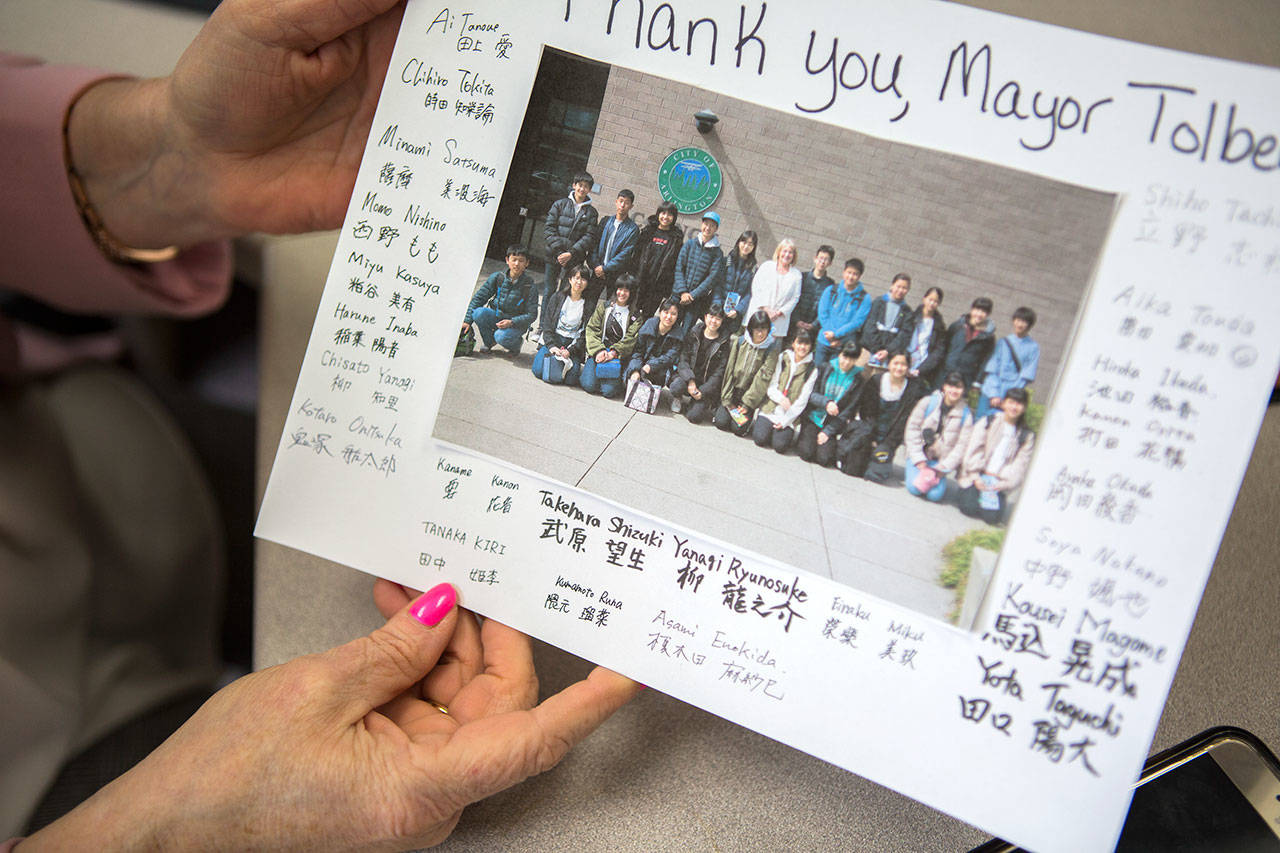 Thank you, Mayor Tolbe
Ai Tanoue
田上 愛
Chihiro Tokita
時田 知優論
Minami Satsuma
薩摩 美波海
Momo Nishino
西野 もも
Miyu Kasuya
粕谷 美有
Harune Inaba
稲葉 陽音
Chisato Yanagi
柳 知里
Kotaro Onitsuka
鬼塚 航太郎
CITY OF
ARLINGTON
Kaname Kanon
花音
TANAKA KIRI
田中 姫李
Takehara Shizuki
武原 望生
Yanagi Ryunosuke
柳 龍之介
Kumamoto Runa
隈元 瑠菜
Asami Enokida
榎木田 麻紗巳
Einaku Miku
栄樂 美玖
Shiho Tach
立野 志
Aika Touda
Hiroka Ikeda
池田
Kanon
村田 花
Ayaka Okada
岡田
Soya Nakano
中野 颯也
Kousei Magome
馬込 晃成
Yota Taguchi
田口 陽大